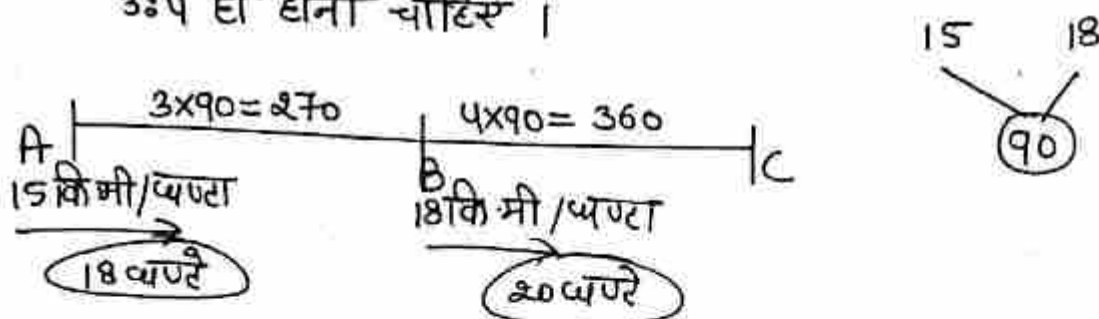 3:4 ही होना चाहिए ।
15 18
90
3x90=270 4x90= 360
A B C
15 कि मी/घण्टा 18 कि.मी /घण्टा
18 घण्टे 20 घण्टे